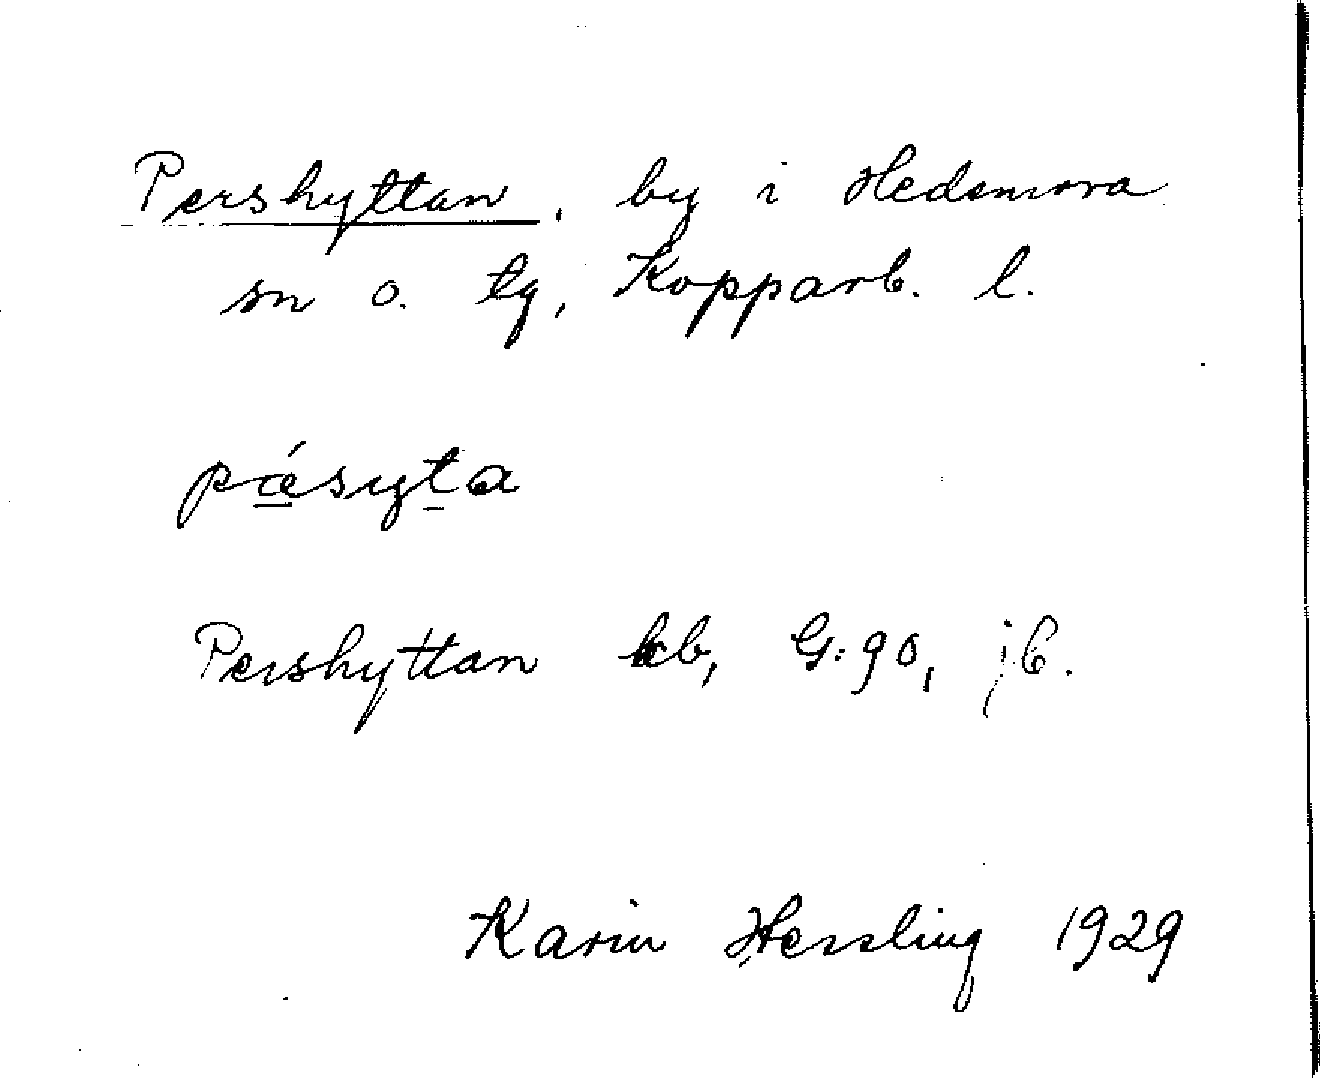 Pershyttan, by i Hedemora
sn o. tg, Kopparb. l.
pä́syta
Pershyttan kb, G:90, jb.
Karin Hessling 1929